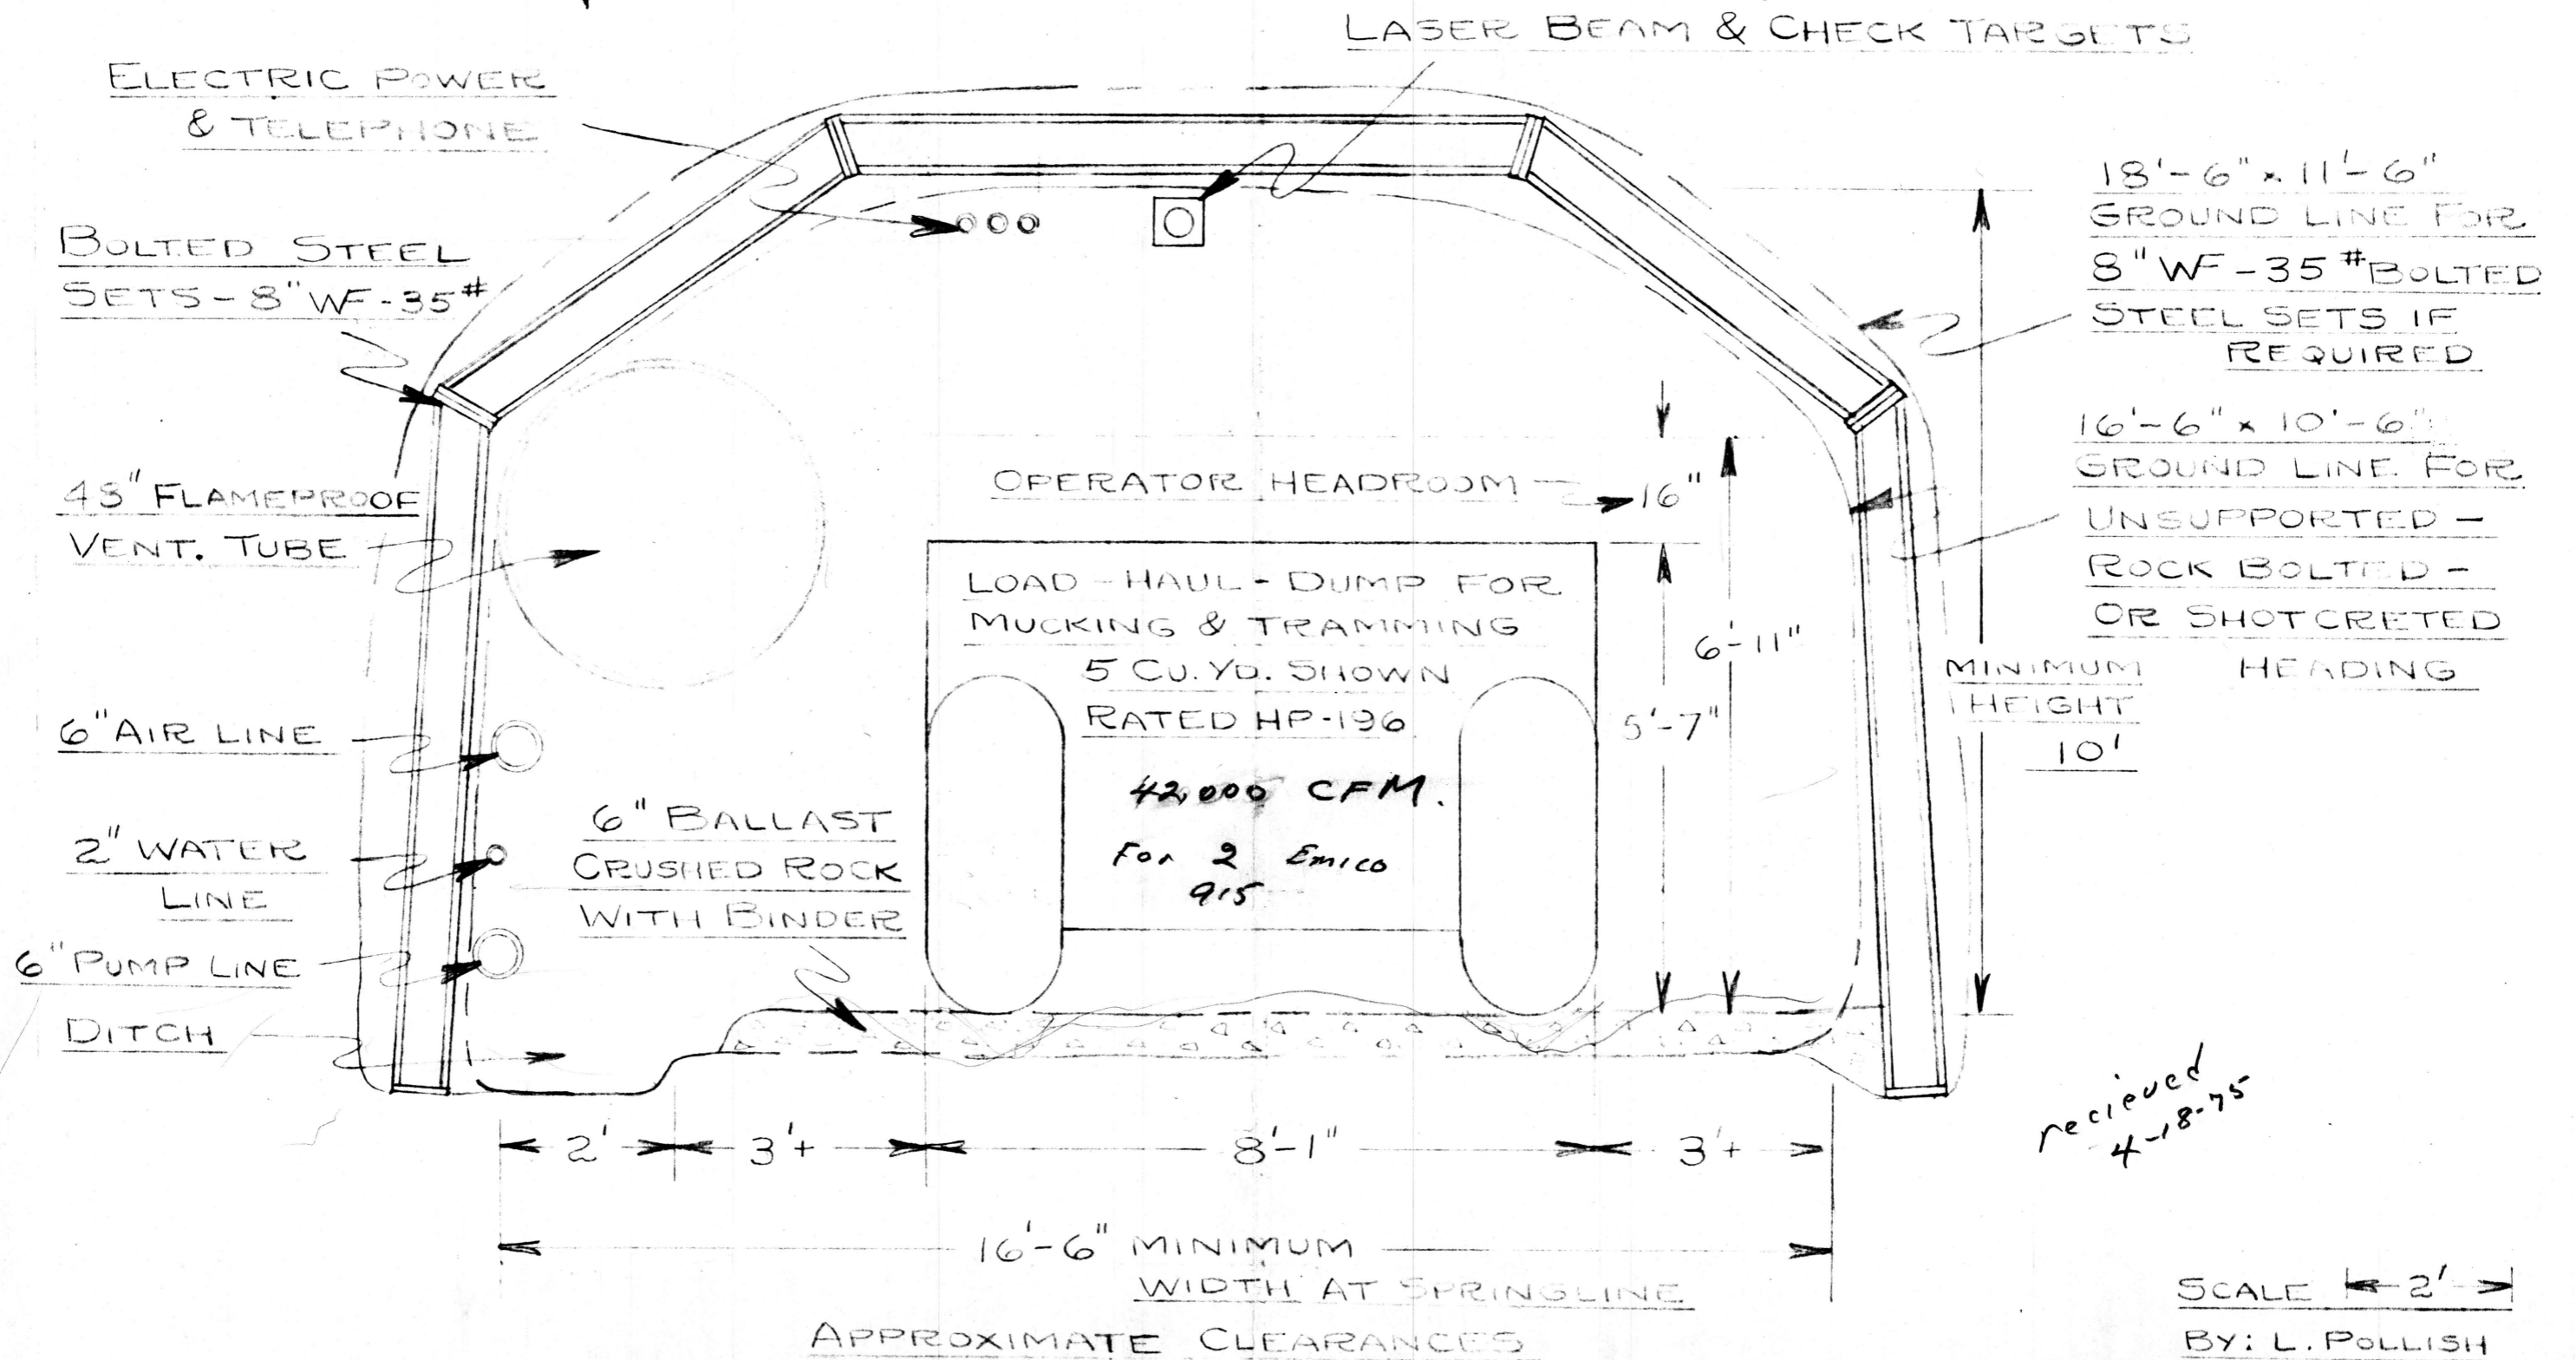 LASER BEAM & CHECK TARGETS
ELECTRIC POWER
& TELEPHONE
BOLTED STEEL
SETS - 8" WF - 35#
48" FLAMEPROOF
VENT. TUBE
6" AIR LINE
2" WATER
LINE
6" PUMP LINE
DITCH
6" BALLAST
CRUSHED ROCK
WITH BINDER
OPERATOR HEADROOM
16"
LOAD - HAUL - DUMP FOR
MUCKING & TRAMMING
5 CU. YD. SHOWN
RATED HP-196
42,000 CFM.
For 2 Emico
915
5'-7"
6'-11"
MINIMUM
HEIGHT
10'
18'-6" x 11'-6"
GROUND LINE FOR
8" WF - 35# BOLTED
STEEL SETS IF
REQUIRED
16'-6" x 10'-6"
GROUND LINE FOR
UNSUPPORTED -
ROCK BOLTED -
OR SHOTCRETED
HEADING
2' 3'+ 8'-1" 3'+
16'-6" MINIMUM
WIDTH AT SPRINGLINE
APPROXIMATE CLEARANCES
recieved
4-18-75
SCALE 2'
BY: L. POLLISH